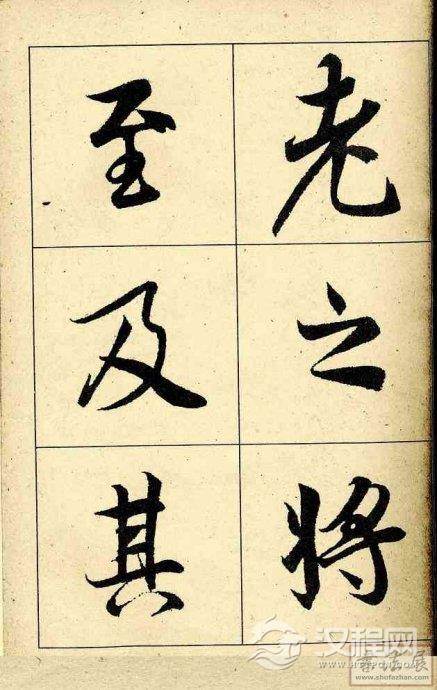 老之将
至及其
汉程网
www.shofazhan.com